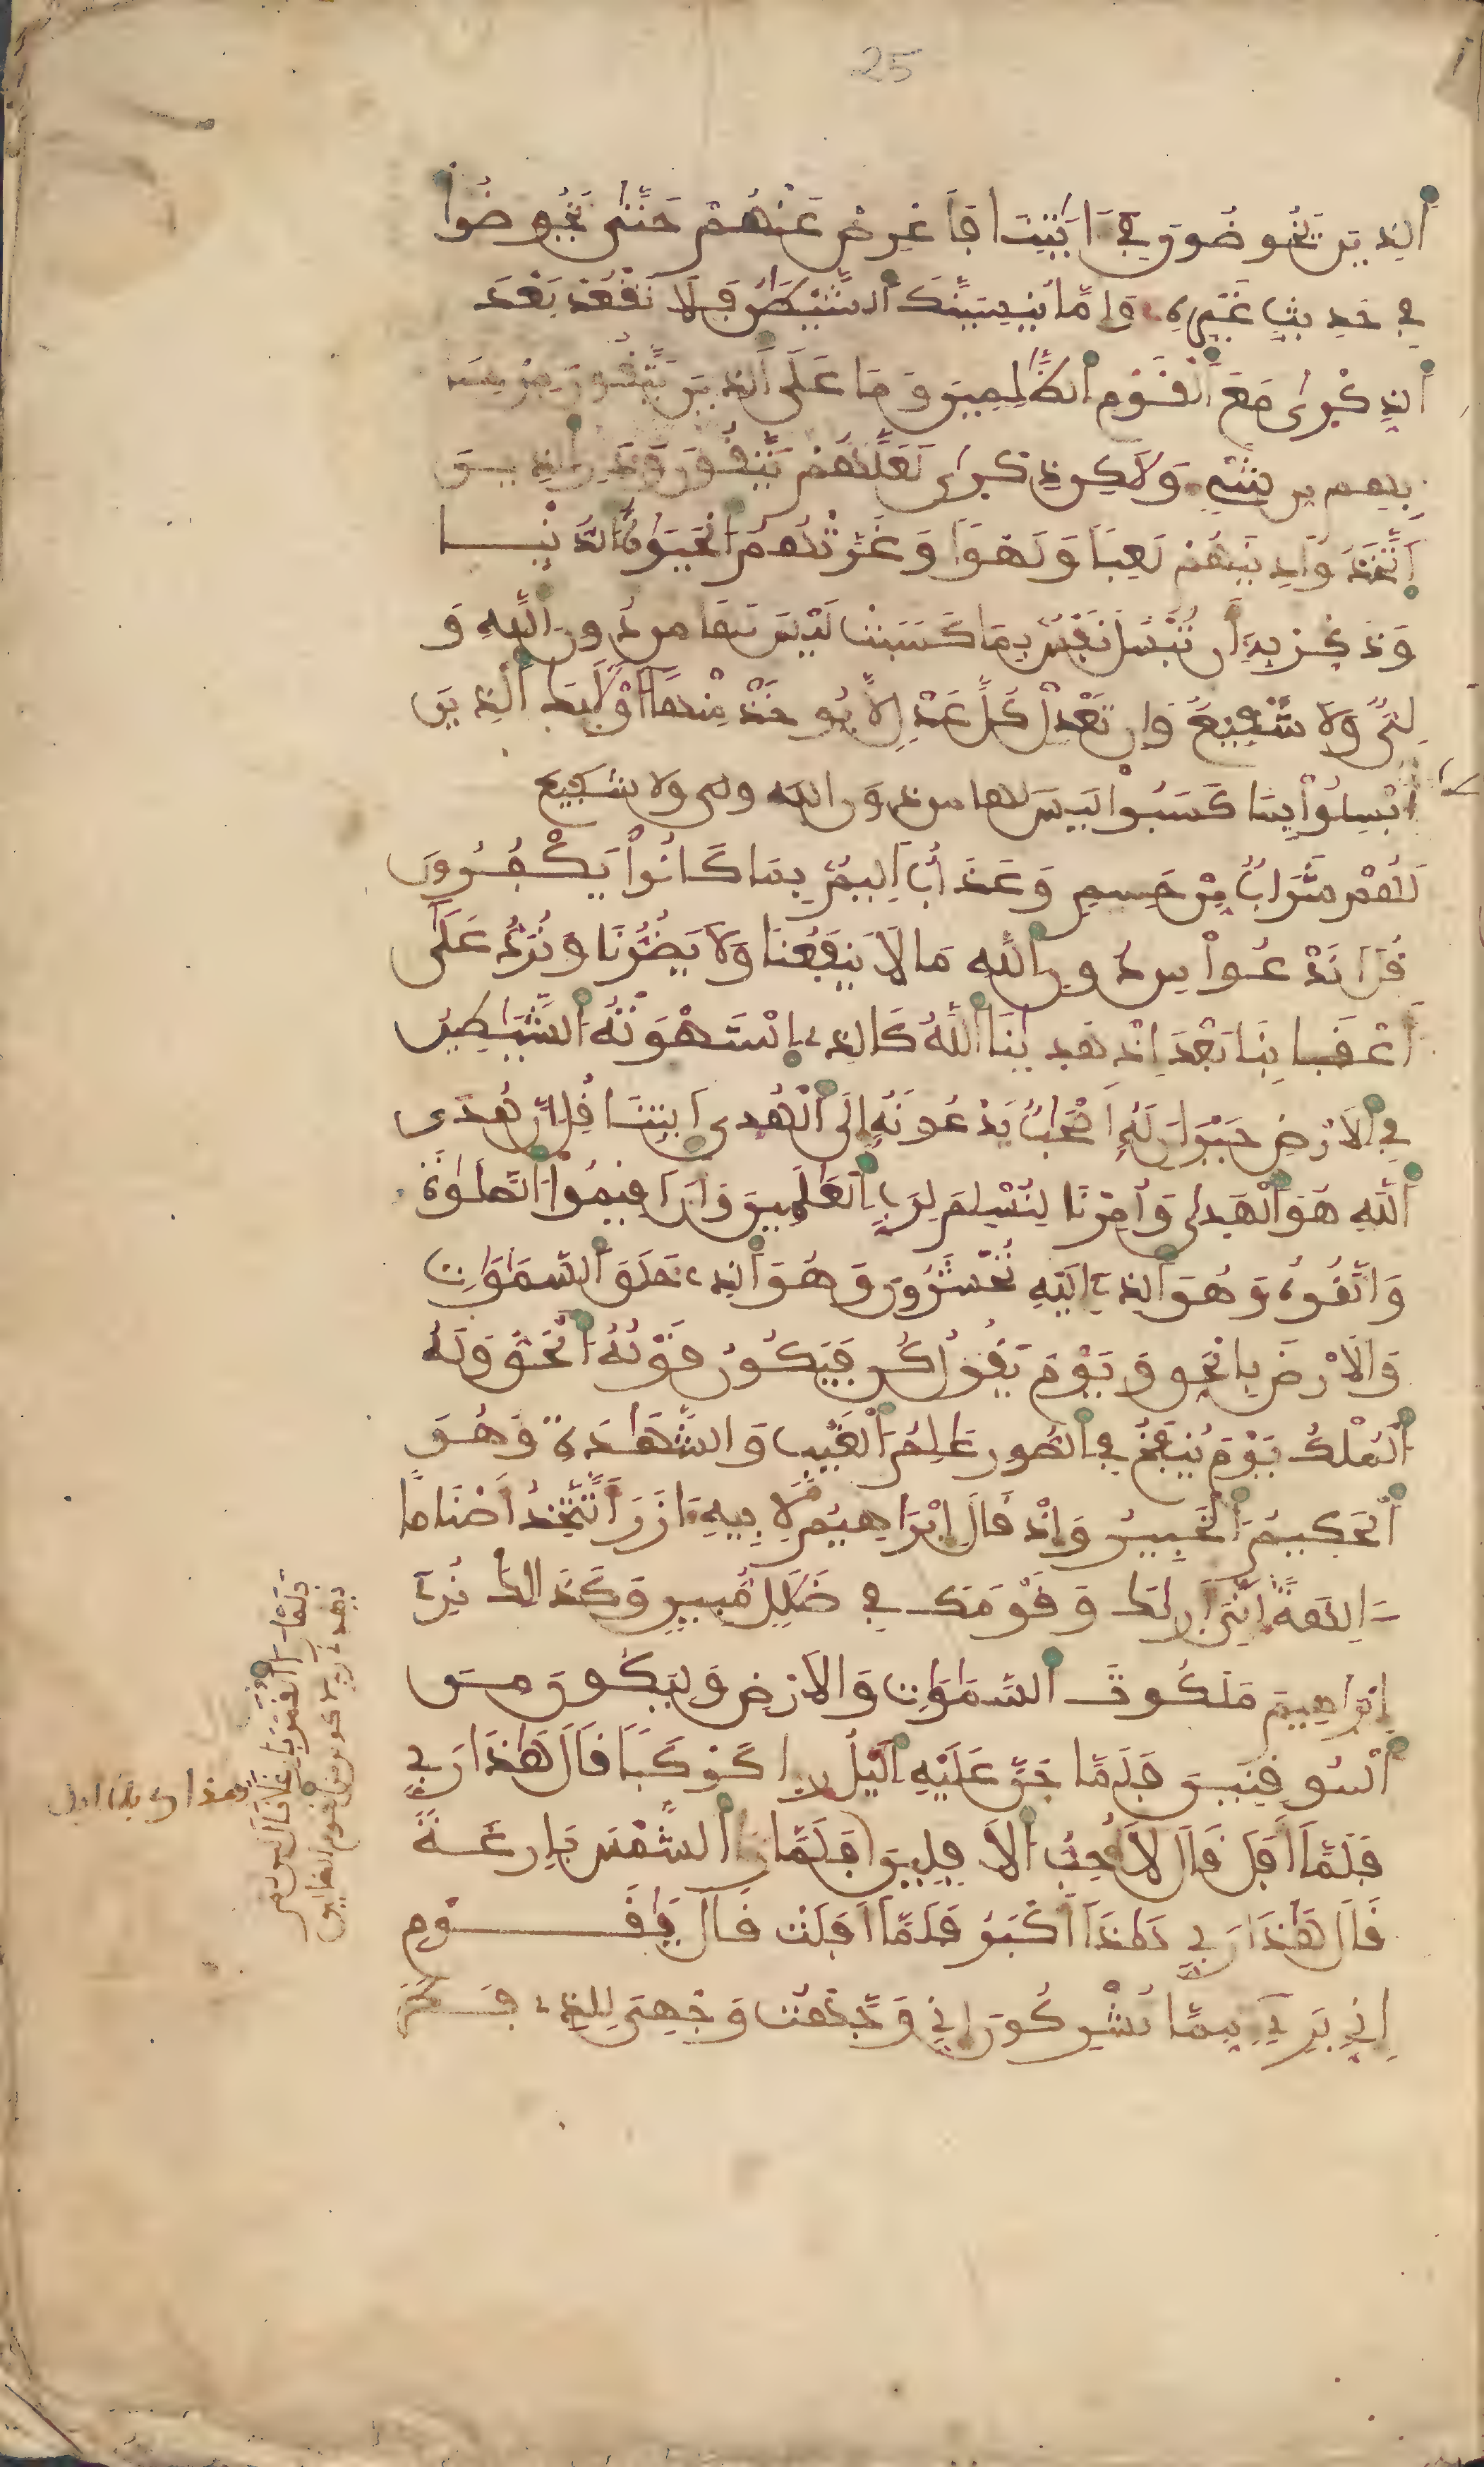 25
الذين يخوضون في ءايتنا فاعرض عنهم حتى يخوضوا
في حديث غيره وإما ينسينك الشيطن فلا تقعد بعد
الذكرى مع القوم الظلمين وما على الذين يتقون من حسا
بهم من شيء ولاكن ذكرى لعلهم يتقون وذر الذين
اتخذوا دينهم لعبا ولهوا وغرتهم الحيوة الدنيا
وذكر به أن تبسل نفس بما كسبت ليس لها من دون الله و
لي ولا شفيع وإن تعدل كل عدل لا يوخذ منها أولئك الذين
ابسلوا بما كسبوا ليس لها من دون الله ولى ولا شفيع
لهم شراب من حميم وعذاب اليم بما كانوا يكفرون
قل اندعوا من دون الله ما لا ينفعنا ولا يضرنا ونرد على
أعقابنا بعد إذ هدينا الله كالذي استهوته الشيطين
في الارض حيران له أصحب يدعونه إلى الهدى ايتنا قل إن هدى
الله هو الهدى وأمرنا لنسلم لرب العلمين وأن اقيموا الصلوة
واتقوه وهو الذي إليه تحشرون وهو الذي خلق السموات
والارض بالحق ويوم يقول كن فيكون قوله الحق وله
الملك يوم ينفخ في الصور علم الغيب والشهدة وهو
الحكيم الخبير وإذ قال إبراهيم لابيه ءازر أتتخذ أصناما
ءالهة إني أريك وقومك في ضلل مبين وكذلك نري
إبراهيم ملكوت السموات والارض وليكون من
الموقنين فلما جن عليه اليل را كوكبا قال هذا ربي
فلما أفل قال لا أحب الافلين فلما را الشمس بازغة
قال هذا ربي هذا أكبر فلما أفلت قال يقوم
إني بريء مما تشركون إني وجهت وجهي للذي فطر
فلما را القمر بازغا قال هذا ربي فلما افل
قال لين لم
يهدني ربي لاكونن من القوم الضالين